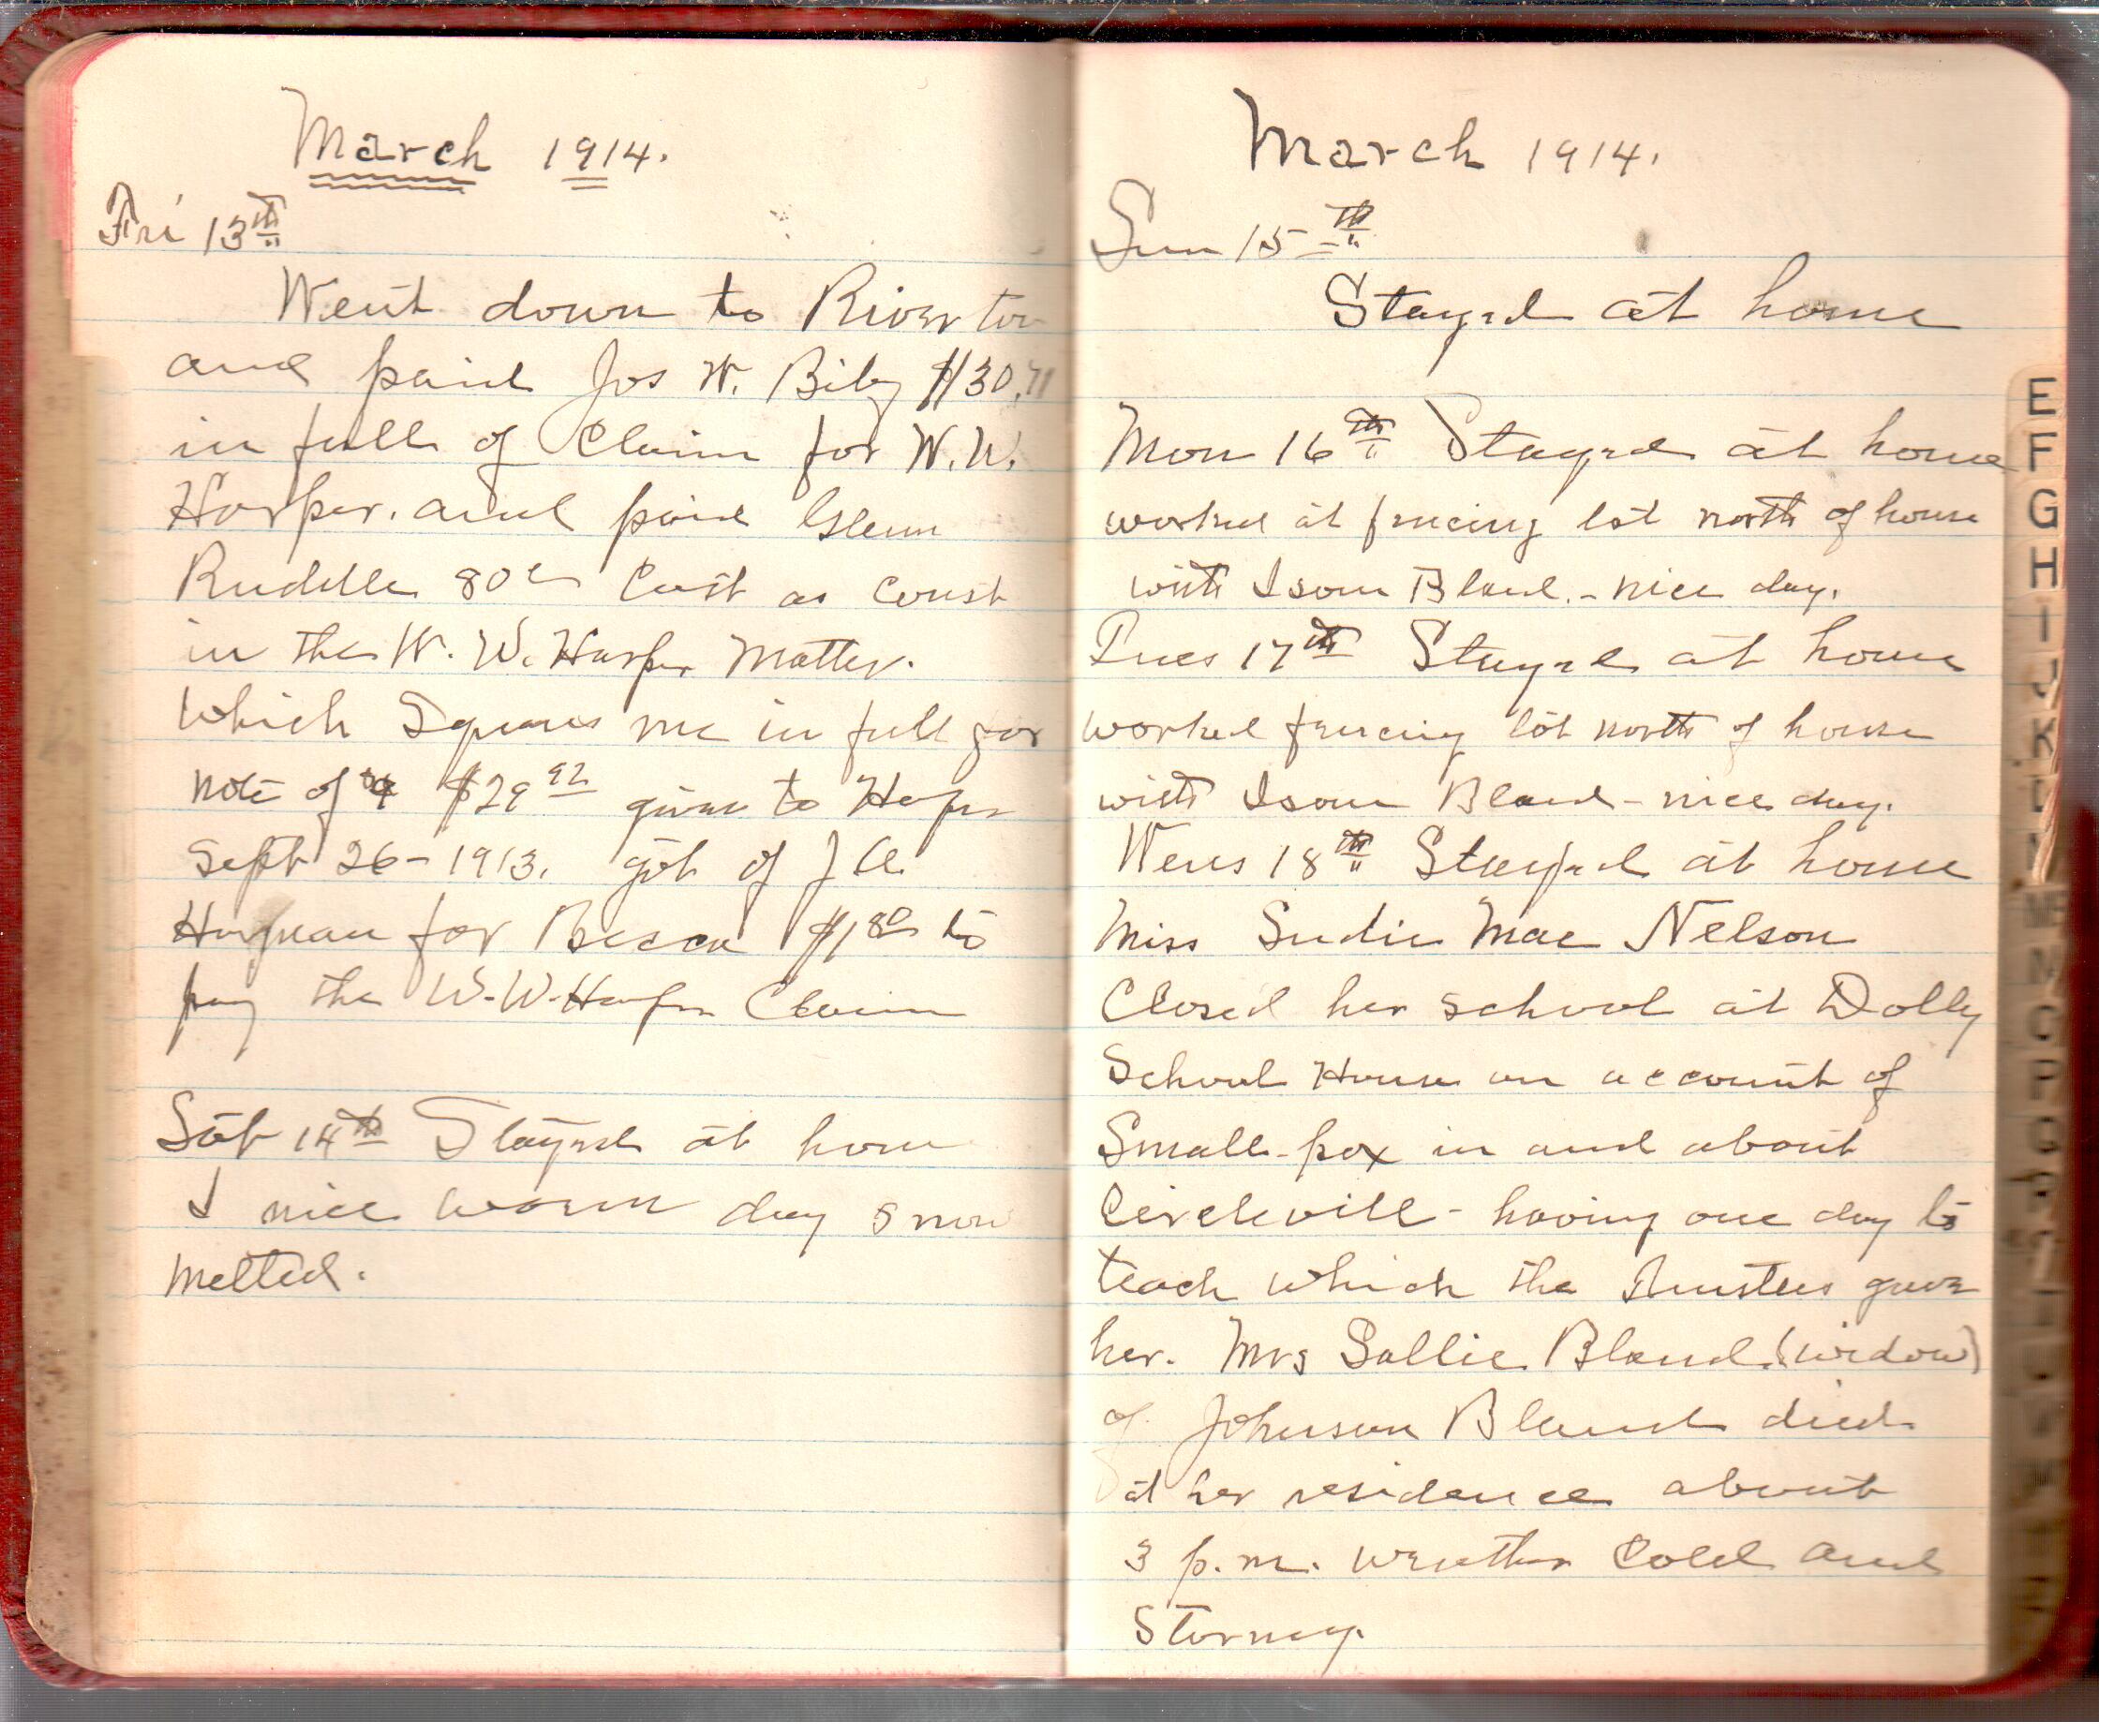 March 1914.
Fri 13th
Went down to Riverton
and paid Jos W. Biby $30.71
in full of Claim for W. W.
Harper. and paid Glenn
Ruddle 80c Cost as Const
in the W. W. Harper Matter.
Which Squares me in full for
note of $29 92 given to Harper
Sept 26 - 1913. got of J A.
for $1 80 to
pay the W. W. Harper Claim
Sat 14th Stayed at home
nice warm day snow
melted.
March 1914.
Sun 15th
Stayed at home
Mon 16th Stayed at home
worked at fencing lot north of house
with Isom Bland. - nice day.
Tues 17th Stayed at home
worked fencing lot north of house
with Isom Bland - nice day.
Wens 18th Stayed at home
Miss Sudie Mae Nelson
Closed her school at Dolly
School House on account of
Small-pox in and about
Circleville - having one day to
teach which the Trustees gave
her. Mrs Sallie Bland (widow)
of Johnson Bland died
at her residence about
3 p.m. weather Cold and
Stormy.
E
F
G
H
I
J
K